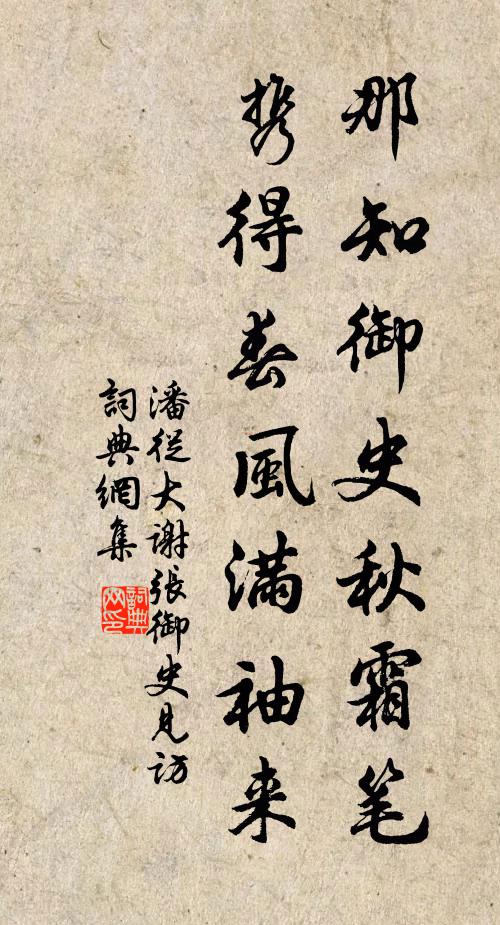 那知御史秋霜笔
携得春風滿袖来
潘從大謝張御史見訪
詞典網集
詞典网印